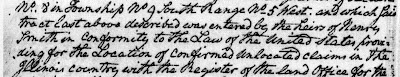 No. 8 in Township No 9 South Range No 5 West. and which said
tract last above described was entered by the heirs of Henry
Smith in conformity to the Law of the United States provi-
ding for the Location of Confirmed Unlocated claims in the
Illinois country with the Register of the Land Office for the